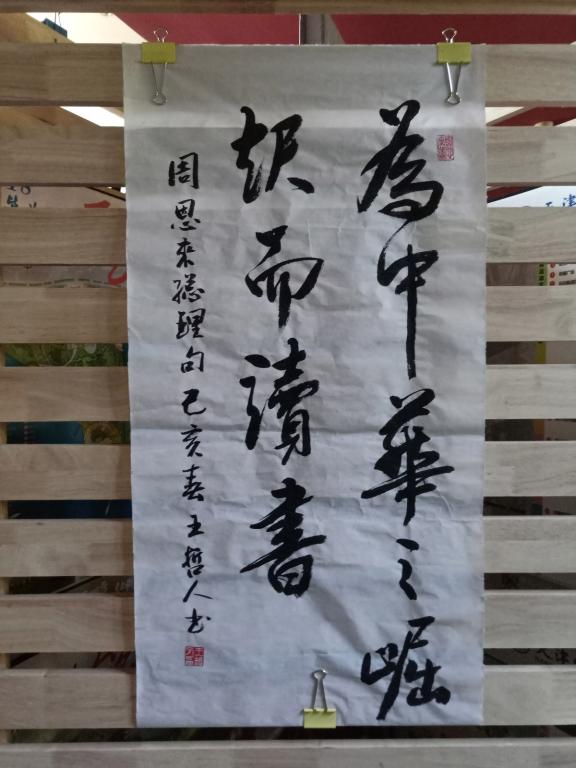 為中華之崛
起而讀書
周恩來總理句己亥春王哲人书